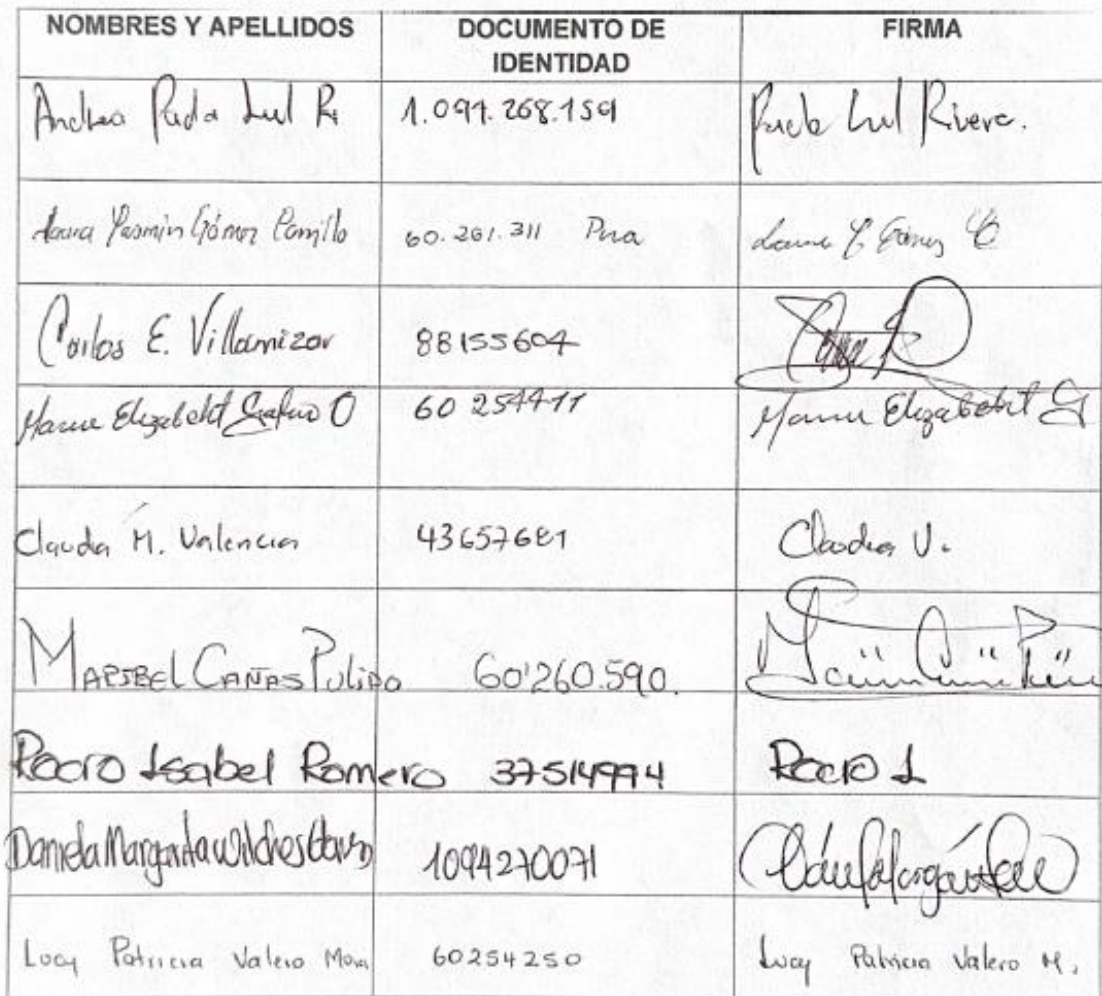 NOMBRES Y APELLIDOS DOCUMENTO DE IDENTIDAD FIRMA
Andrea Paola Leal R. 1.094.268.159 Paola Leal Rivera.
Yasmin Gómez 60.261.311 Gómez
Carlos E. Villamizar 88155604
Elizabeth 60 254411 Elizabeth G
Claudia M. Valencia 43657681 Claudia V.
MARIBEL CAÑAS PULIDO 60'260.590.
Rocio Isabel Romero 37514994 Rocio I
Daniela Margarita Wilches 1094270071
Lucy Patricia Valero Mora 60254250 Lucy Patricia Valero M.